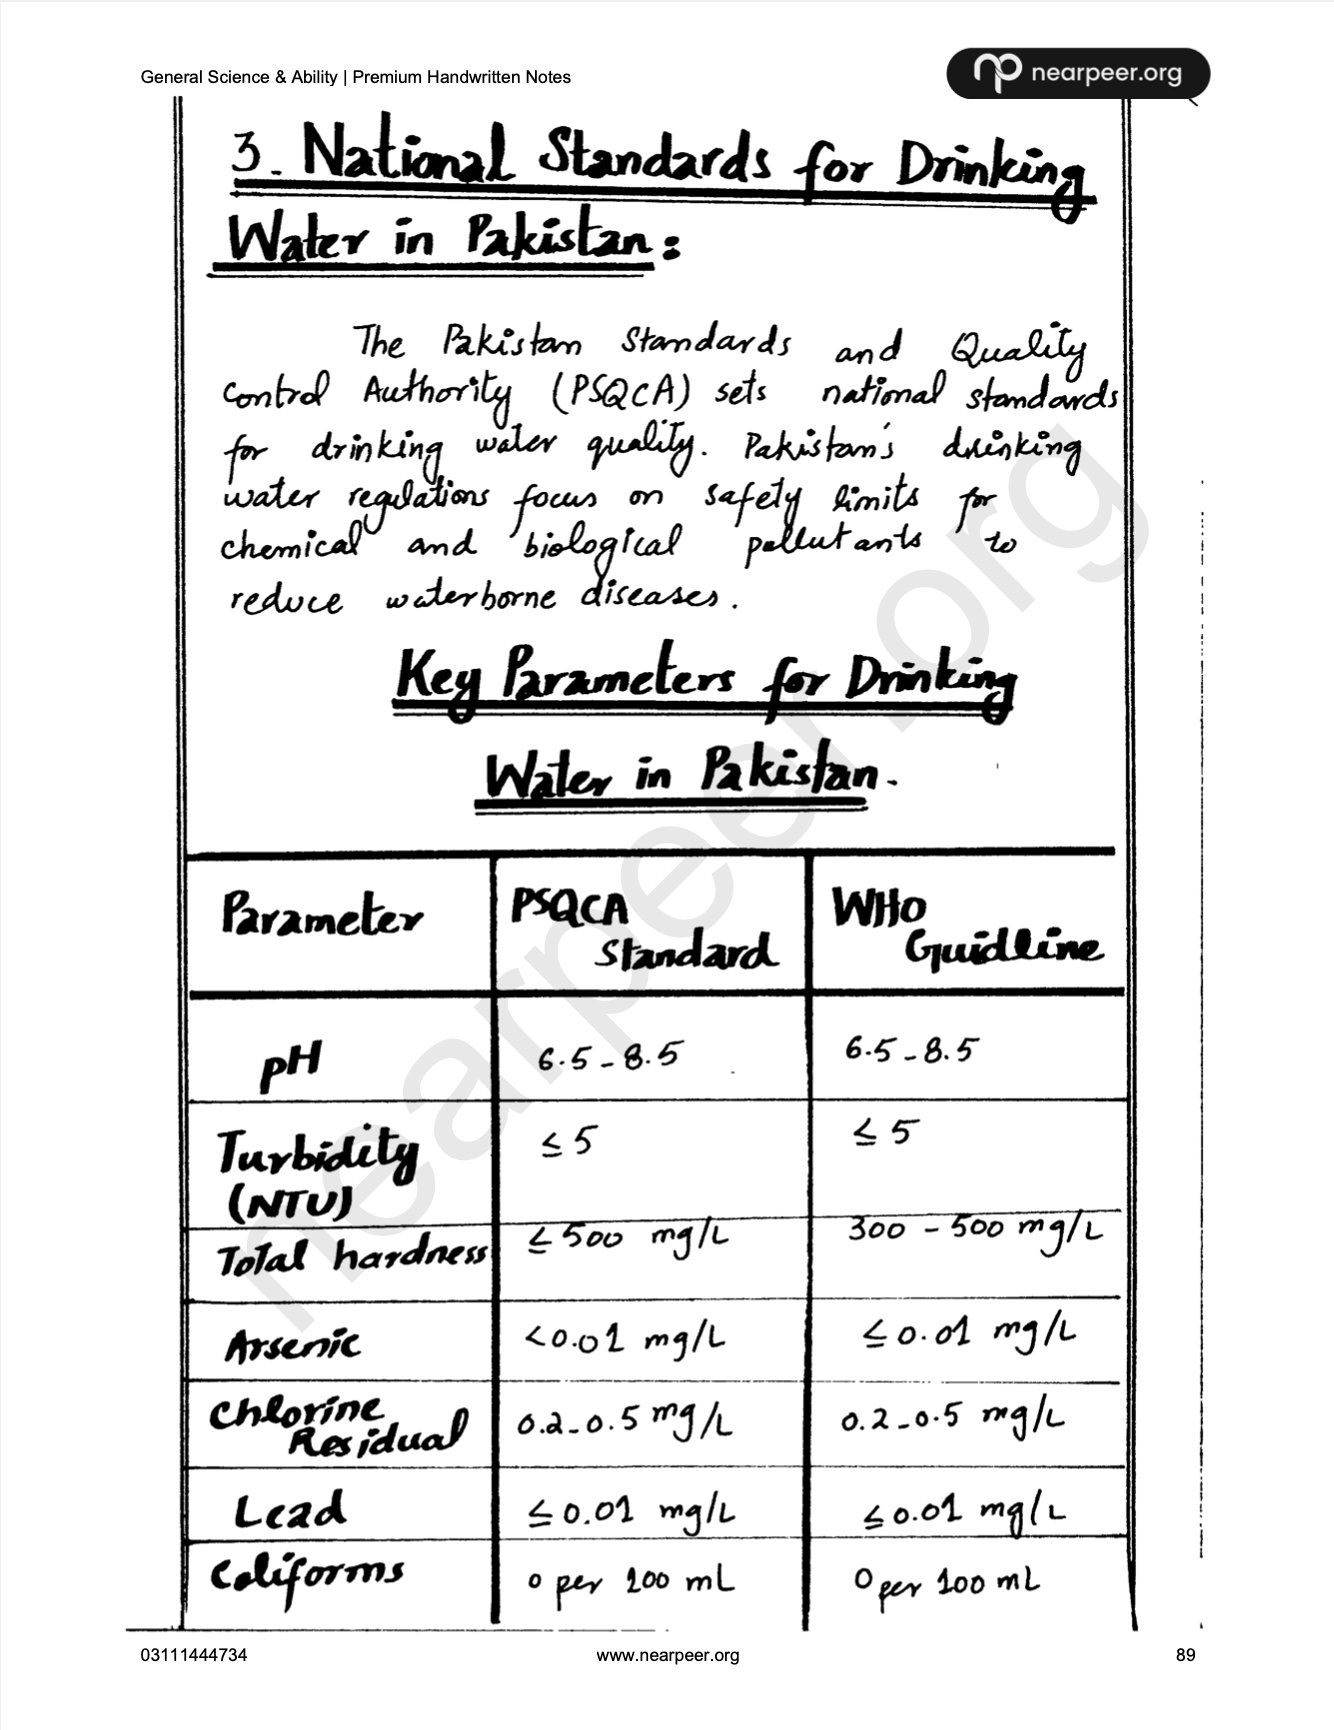 General Science & Ability | Premium Handwritten Notes
nearpeer.org
3. National Standards for Drinking
Water in Pakistan:
The Pakistan Standards and Quality
Control Authority (PSQCA) sets national standards
for drinking water quality. Pakistan's drinking
water regulations focus on safety limits for
chemical and biological pollutants to
reduce waterborne diseases.
Key Parameters for Drinking
Water in Pakistan.
Parameter PSQCA Standard WHO Guidline
pH 6.5-8.5 6.5-8.5
Turbidity (NTU) ≤5 ≤5
Total hardness ≤500 mg/L 300-500 mg/L
Arsenic <0.01 mg/L ≤0.01 mg/L
Chlorine Residual 0.2-0.5 mg/L 0.2-0.5 mg/L
Lead ≤0.01 mg/L ≤0.01 mg/L
Coliforms 0 per 100 mL 0 per 100 mL
nearpeer.org
03111444734 www.nearpeer.org 89